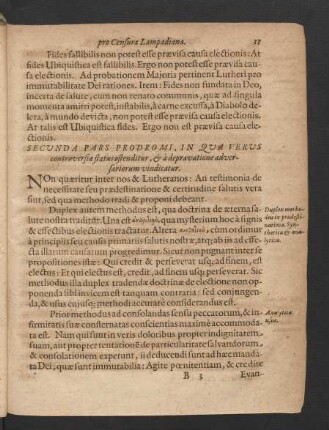 pro Censura Lampadiana. 11
Fides fallibilis non potest esse prævisa causa electionis: At
fides Ubiquistica est fallibilis. Ergo non potest esse prævisa cau-
sa electionis. Ad probationem Majoris pertinent Lutheri pro
immutabilitate Dei rationes. Item: Fides non fundata in Deo,
incerta de salute, cum non renato communis, quæ ad singula
momenta amitti potest, instabilis, à carne excussa, à Diabolo de-
lera, à mundo devicta, non potest esse prævisa causa electionis.
Ar talis est Ubiquistica fides. Ergo non est prævisa causa ele-
ctionis.
SECUNDA PARS PRODROMI, IN QUA VERUS
controversiæ status ostenditur, & à depravatione adver-
sariorum vindicatur.
NOn quæritur inter nos & Lutheranos: An testimonia de
necessitate seu prædestinatione & certitudine salutis vera
sint, sed qua methodo tradi & proponi debeant.
Duplex autem methodus est, qua doctrina de æterna sa-
lute nostra traditur. Una est qua mysterium hoc à signis
& effectibus electionis tractatur. Altera cum ordimur
à principiis seu causis primariis salutis nostræ, atq; ab iis ad effe-
cta illarum causarum progredimur. Sicut non pugnant inter se
propositiones istæ: Qui credit & perseverat usq; ad finem, est
electus: Et qui electus est, credit, ad finem usq; perseverat. Sic
methodus illa duplex tradendæ doctrinæ de electione non op-
ponenda sibi invicem est tanquam contraria: sed conjungen-
da, & usus ejusq; methodi accuratè considerandus est.
Duplex metho-
dus in prædesti-
natione. Syn-
thetica & ana-
lytica.
Prior methodus ad consolandas sensu peccatorum, & in-
firmitatis suæ consternatas conscientias maximè accommoda-
ta est. Nam qui sunt in veris doloribus propter indignitatem
suam, aut propter tentationē de particularitate salvandorum,
& consolationem expetunt, ii deducendi sunt ad hæc manda-
ta Dei, quæ sunt immutabilia: Agite pœnitentiam, & credite
B 3 Evan-